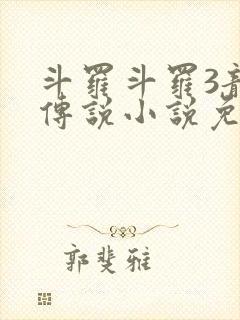 斗羅斗羅3
傳說小說免
郭斐雅